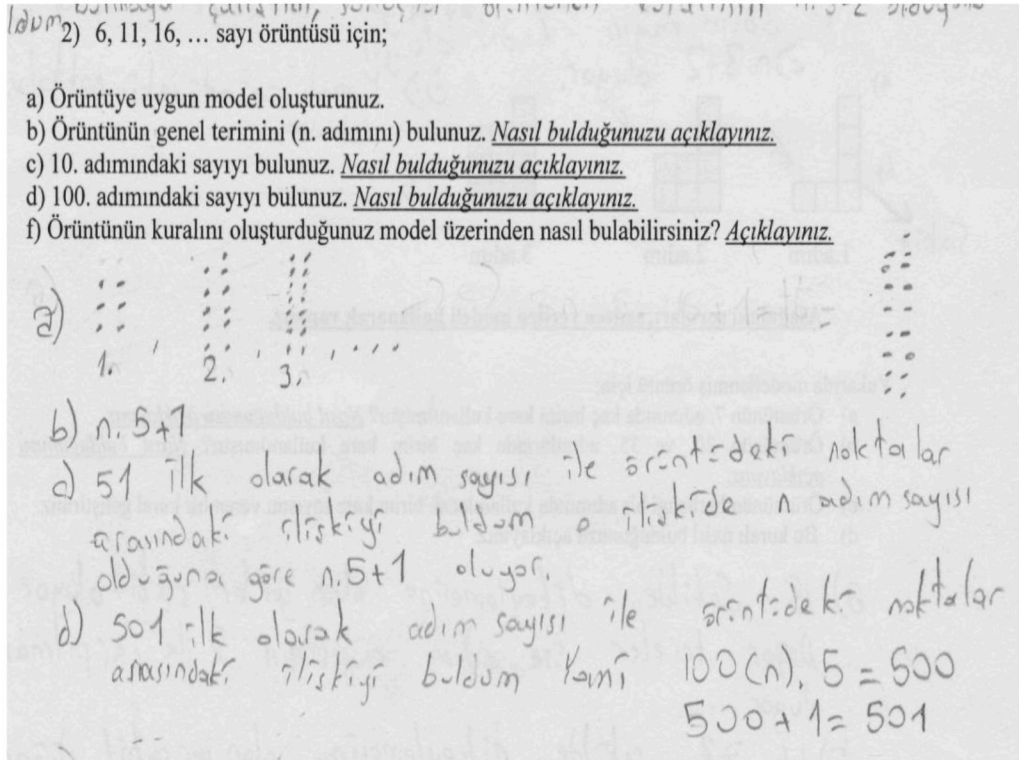 2) 6, 11, 16, … sayı örüntüsü için;
a) Örüntüye uygun model oluşturunuz.
b) Örüntünün genel terimini (n. adımını) bulunuz. Nasıl bulduğunuzu açıklayınız.
c) 10. adımındaki sayıyı bulunuz. Nasıl bulduğunuzu açıklayınız.
d) 100. adımındaki sayıyı bulunuz. Nasıl bulduğunuzu açıklayınız.
f) Örüntünün kuralını oluşturduğunuz model üzerinden nasıl bulabilirsiniz? Açıklayınız.
a)
1. 2. 3.
b) n.5+1
c) 51 İlk olarak adım sayısı ile örüntüdeki noktalar
arasındaki ilişkiyi buldum o ilişkide adım sayısı
olduğuna göre n.5+1 oluyor
d) 501 ilk olarak adım sayısı ile örüntüdeki noktalar
arasındaki ilişkiyi buldum Yani 100(n).5=500
500+1=501